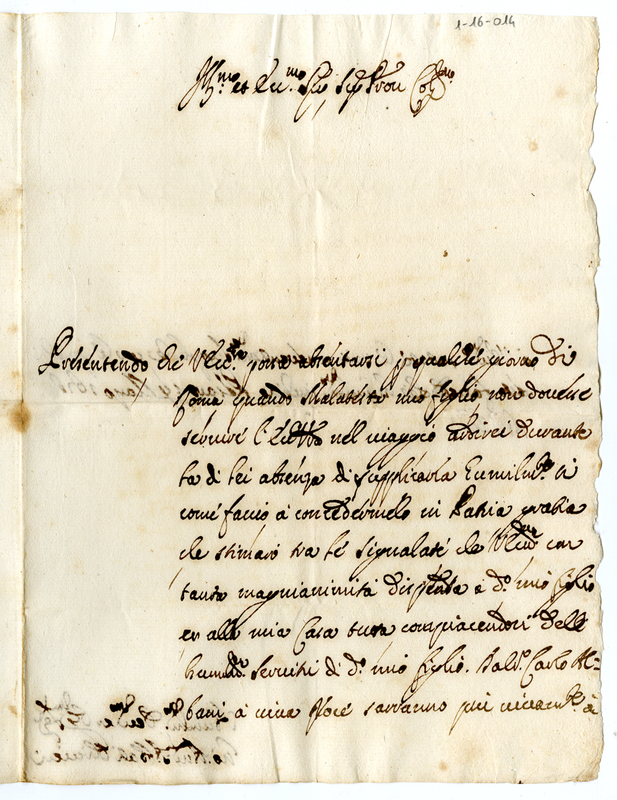 1-16-014
Ill.mo et Ecc.mo Sig.r Sig.r Pron Col.mo
Presentendo che V. Ecc.za possa absentarsi p qualche giorno di
Roma quando Malatesta mio figlio non dovesse
servire l'E. V. nel viaggio ardirei durante
la di lei absenza di supplicarla humilm.te si
come faccio à concedermelo in Patria gratia
che stimarò tra le signalate che V. Ecc.za con
tanta magnianimità dispensa à d.o mio figlio
et alla mia Casa tutta compiacendosi delli
humiliss.i servitii di d.o mio figlio. Il Sig.r Carlo Al=
bani à viva voce saranno più vivam.te à